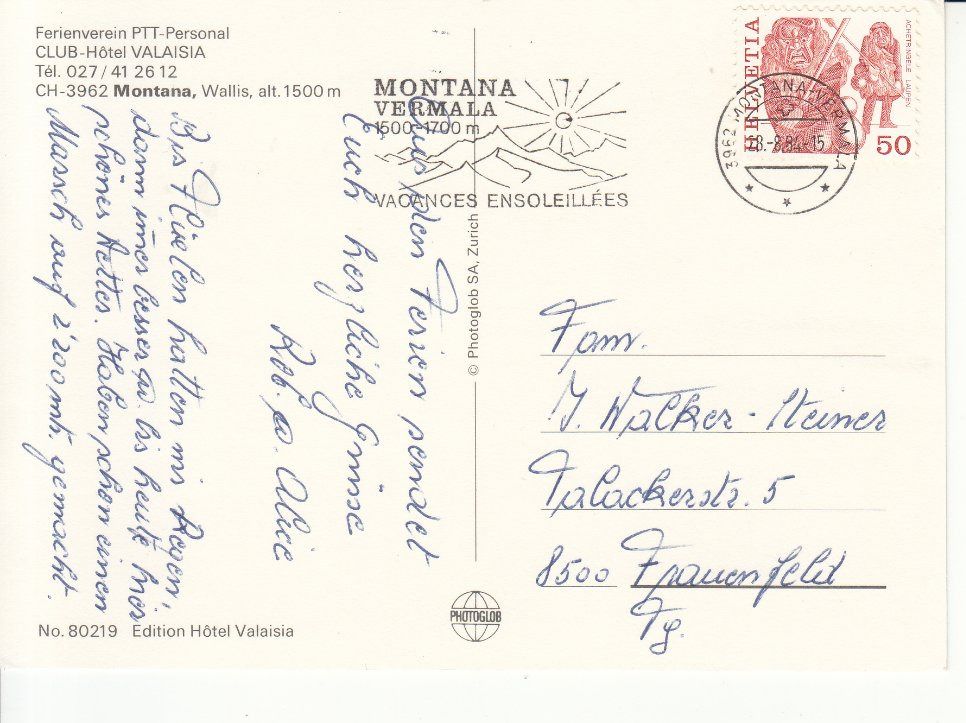 Ferienverein PTT-Personal
CLUB-Hôtel VALAISIA
Tél. 027/41 26 12
CH-3962 Montana, Wallis, alt. 1500 m
MONTANA
VERMALA
1500-1700 m
VACANCES ENSOLEILLÉES
HELVETIA
ACHETRINGELE LAUPEN
50
3962 MONTANA-VERMALA
8.84-15
Aus den Ferien sendet
Euch herzliche Grüsse
Rob. Alice
Bis Flüelen hatten wir Regen,
dann immer besser bis heute hier
schönes Wetter. Haben schon einen
Marsch auf 2'200 mtr. gemacht.
© Photoglob SA, Zurich
Fam.
J. Walker-Steiner
Talackerstr. 5
8500 Frauenfeld
Tg.
PHOTOGLOB
No. 80219 Edition Hôtel Valaisia